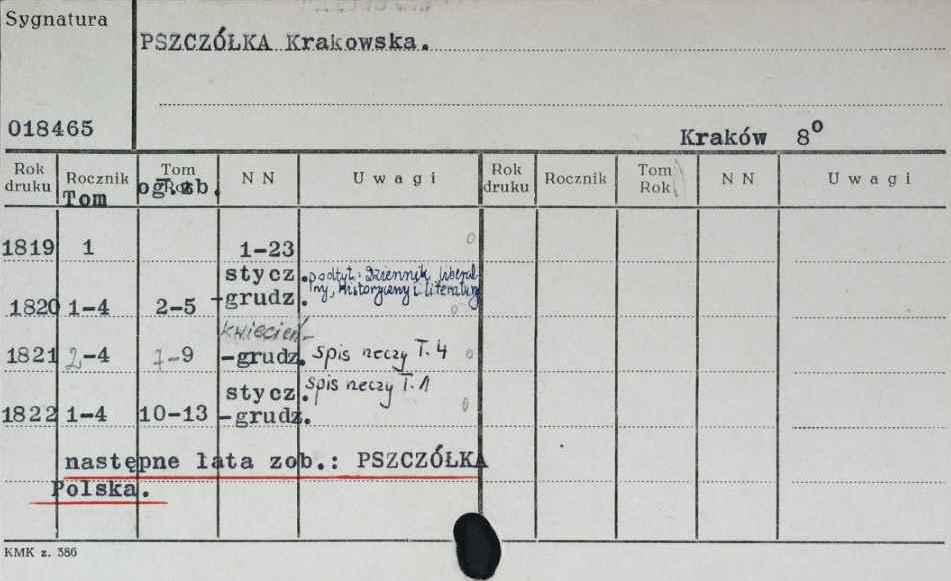 Sygnatura
PSZCZÓŁKA Krakowska.
018465
Kraków 8º
Rok druku Rocznik Tom Rok N N U w a g i Rok druku Rocznik Tom Rok N N U w a g i
Tom og.zb.
1819 1 1-23 0
stycz. podtyt. Dziennik liberal-
1820 1-4 2-5 -grudz. ny, historyczny i literatury 0
kwiecień-
1821 2-4 7-9 -grudz. spis rzeczy T. 4 0
stycz. spis rzeczy T. 1
1822 1-4 10-13 -grudz. 0
następne lata zob.: PSZCZÓŁKA
Polska.
KMK z. 386